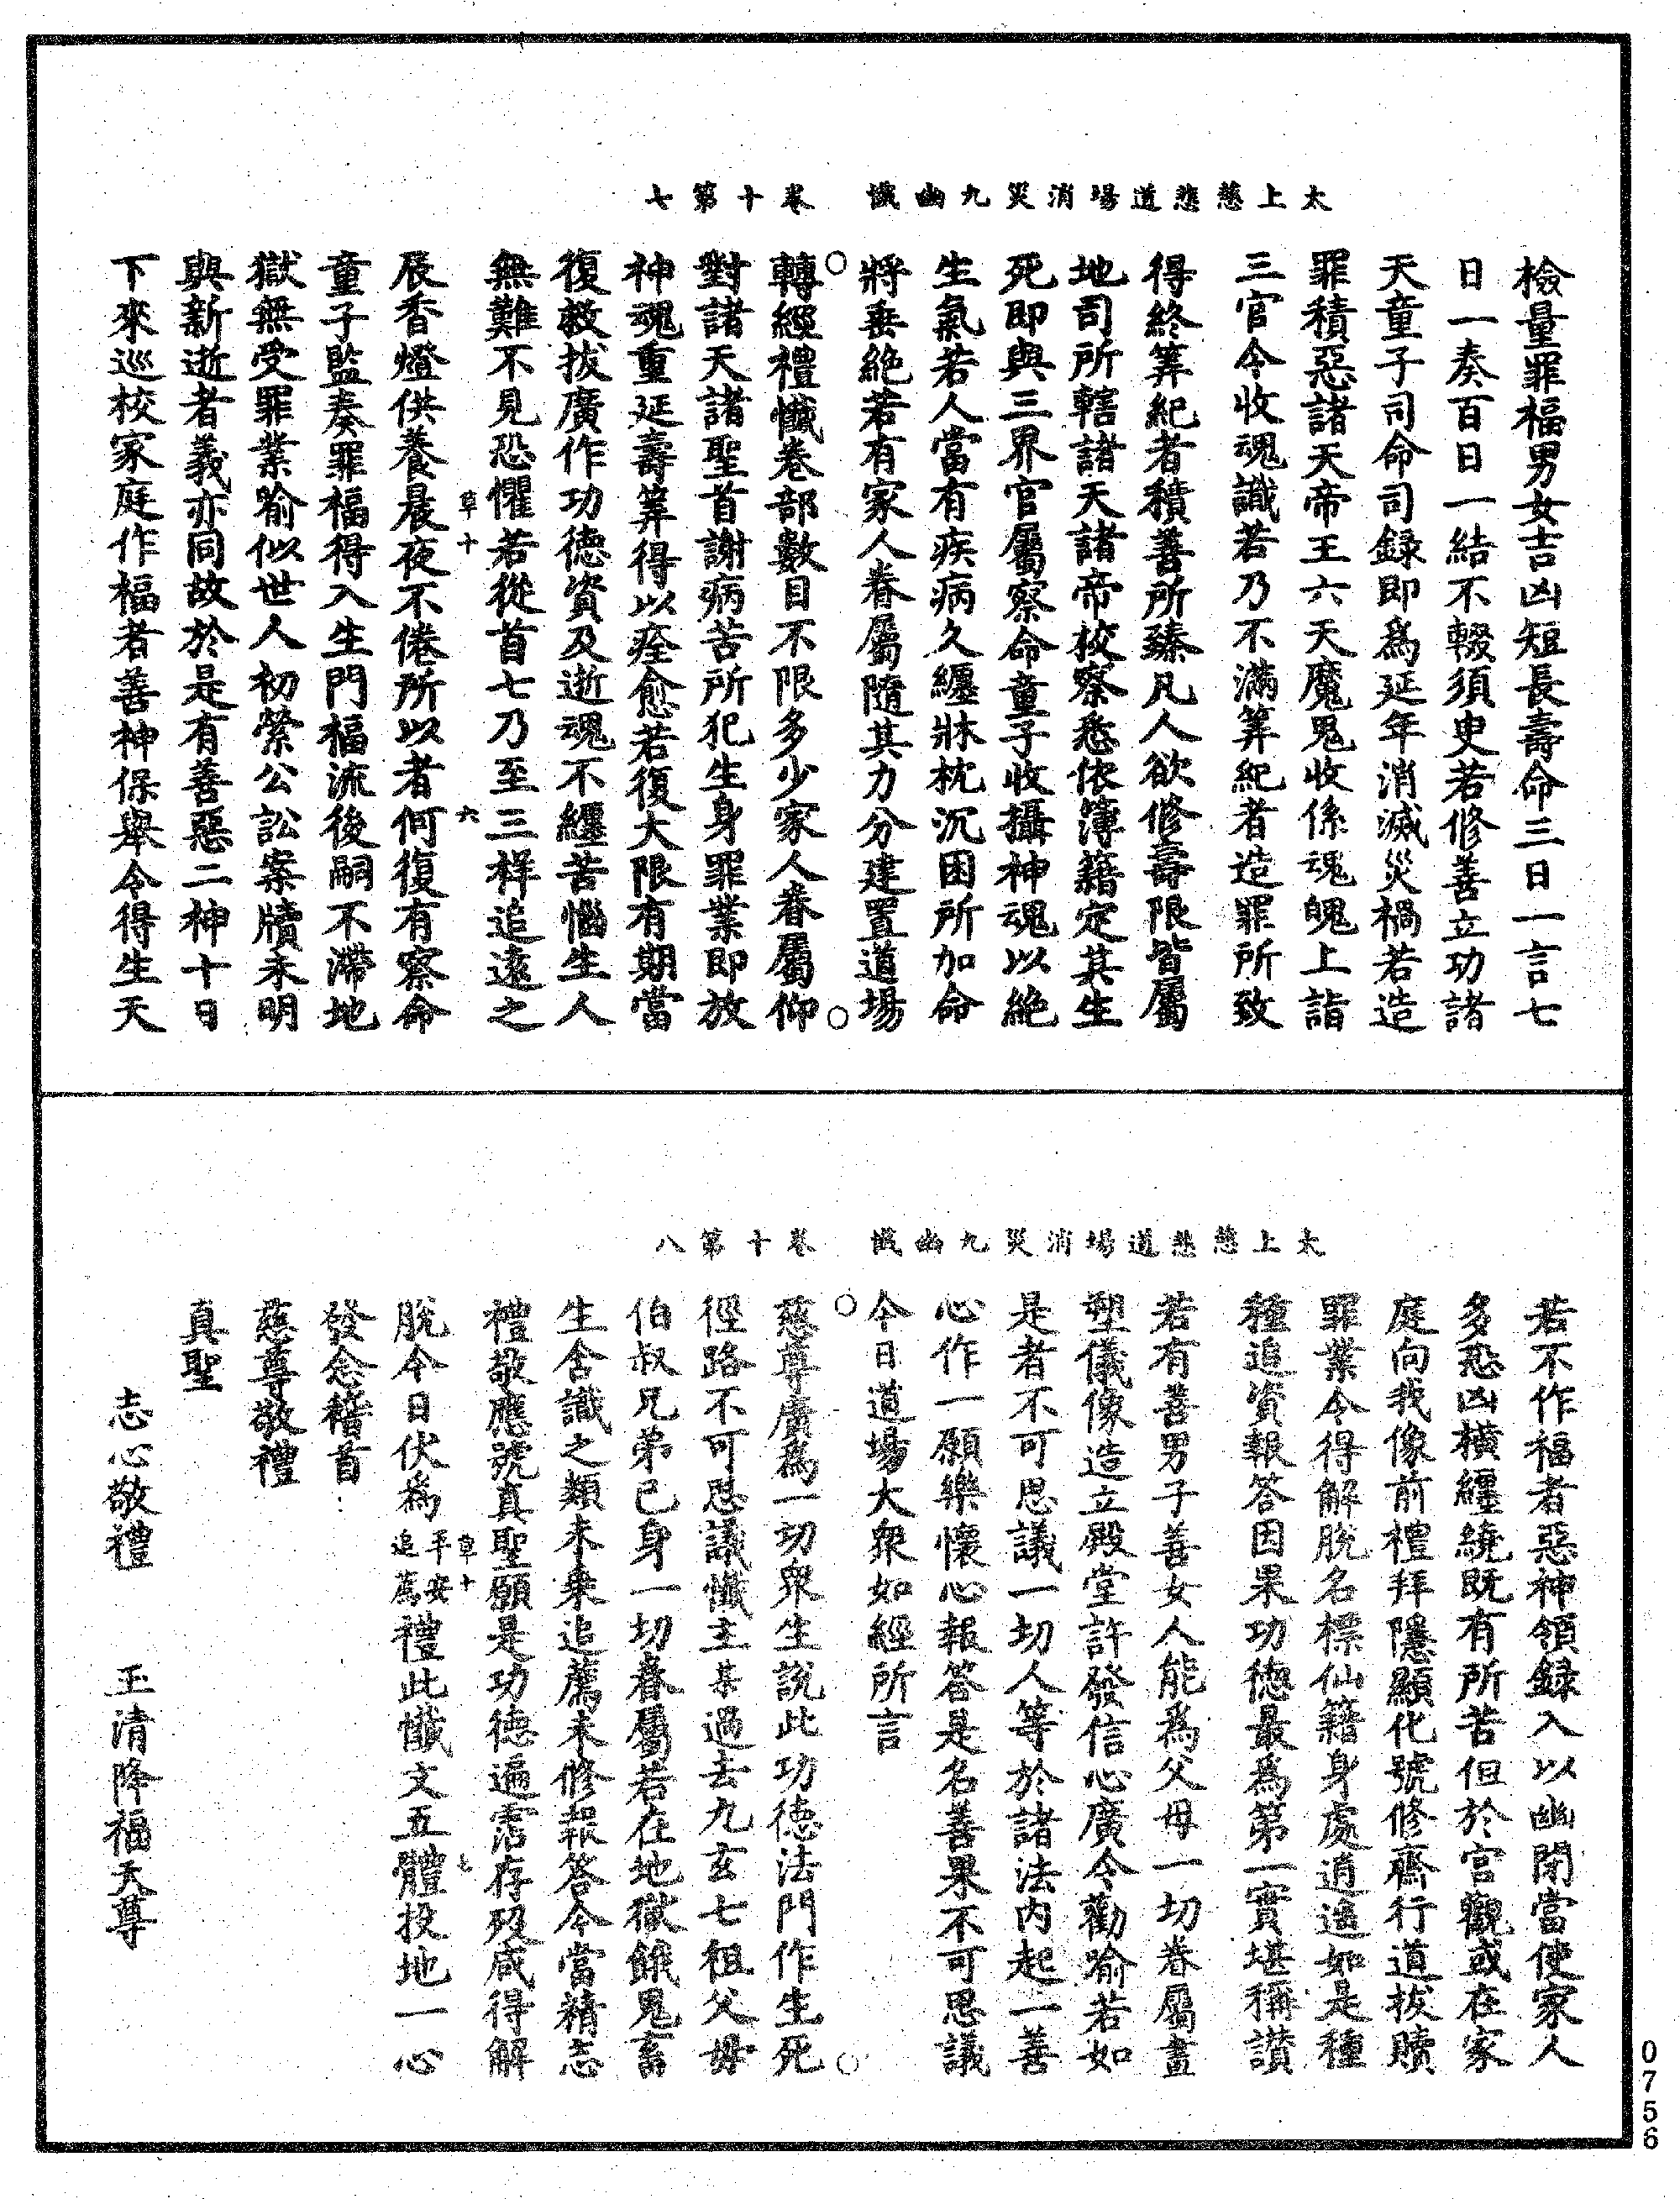 太上慈悲道場消災九幽懺　卷十第七
檢量罪福男女吉凶短長壽命三日一言七
日一奏百日一結不輟須臾若修善立功諸
天童子司命司録即為延年消滅災禍若造
罪積惡諸天帝王六天魔鬼收係魂魄上詣
三官令收魂識若乃不滿筭紀者造罪所致
得終筭紀者積善所臻凡人欲修壽限皆屬
地司所轄諸天諸帝校察悉依簿籍定其生
死即與三界官屬察命童子收攝神魂以絶
生氣若人當有疾病久纏牀枕沉困所加命
將垂絶若有家人眷屬隨其力分建置道場
轉經禮懺卷部數目不限多少家人眷屬仰
對諸天諸聖首謝病苦所犯生身罪業即放
神魂重延壽筭得以痊愈若復大限有期當
復救拔廣作功德資及逝魂不纏苦惱生人
無難不見恐懼若從首七乃至三祥追遠之
草十　六
辰香燈供養晨夜不倦所以者何復有察命
童子監奏罪福得入生門福流後嗣不滯地
獄無受罪業喻似世人初縈公訟案牘未明
與新逝者義亦同故於是有善惡二神十日
下來巡校家庭作福者善神保舉令得生天
太上慈悲道場消災九幽懺　卷十第八
若不作福者惡神領録入以幽閉當使家人
多恐凶橫纏繞既有所苦但於宮觀或在家
庭向我像前禮拜隱顯化號修齋行道拔贖
罪業令得解脫名標仙籍身處逍遥如是種
種追資報答因果功德最為第一實堪稱讃
若有善男子善女人能為父母一切眷屬畫
塑儀像造立殿堂許發信心廣令勸喻若如
是者不可思議一切人等於諸法内起一善
心作一願樂懷心報答是名善果不可思議
今日道場大衆如經所言
慈尊廣為一切衆生說此功德法門作生死
徑路不可思議懺主某過去九玄七祖父母
伯叔兄弟已身一切眷屬若在地獄餓鬼畜
生含識之類未乘追薦未修報答今當精志
禮敬應號真聖願是功德遍霑存歿咸得解
草十　七
脫今日伏為平安追薦禮此懺文五體投地一心
發念稽首
慈尊敬禮
真聖
志心敬禮　玉清降福天尊
0756